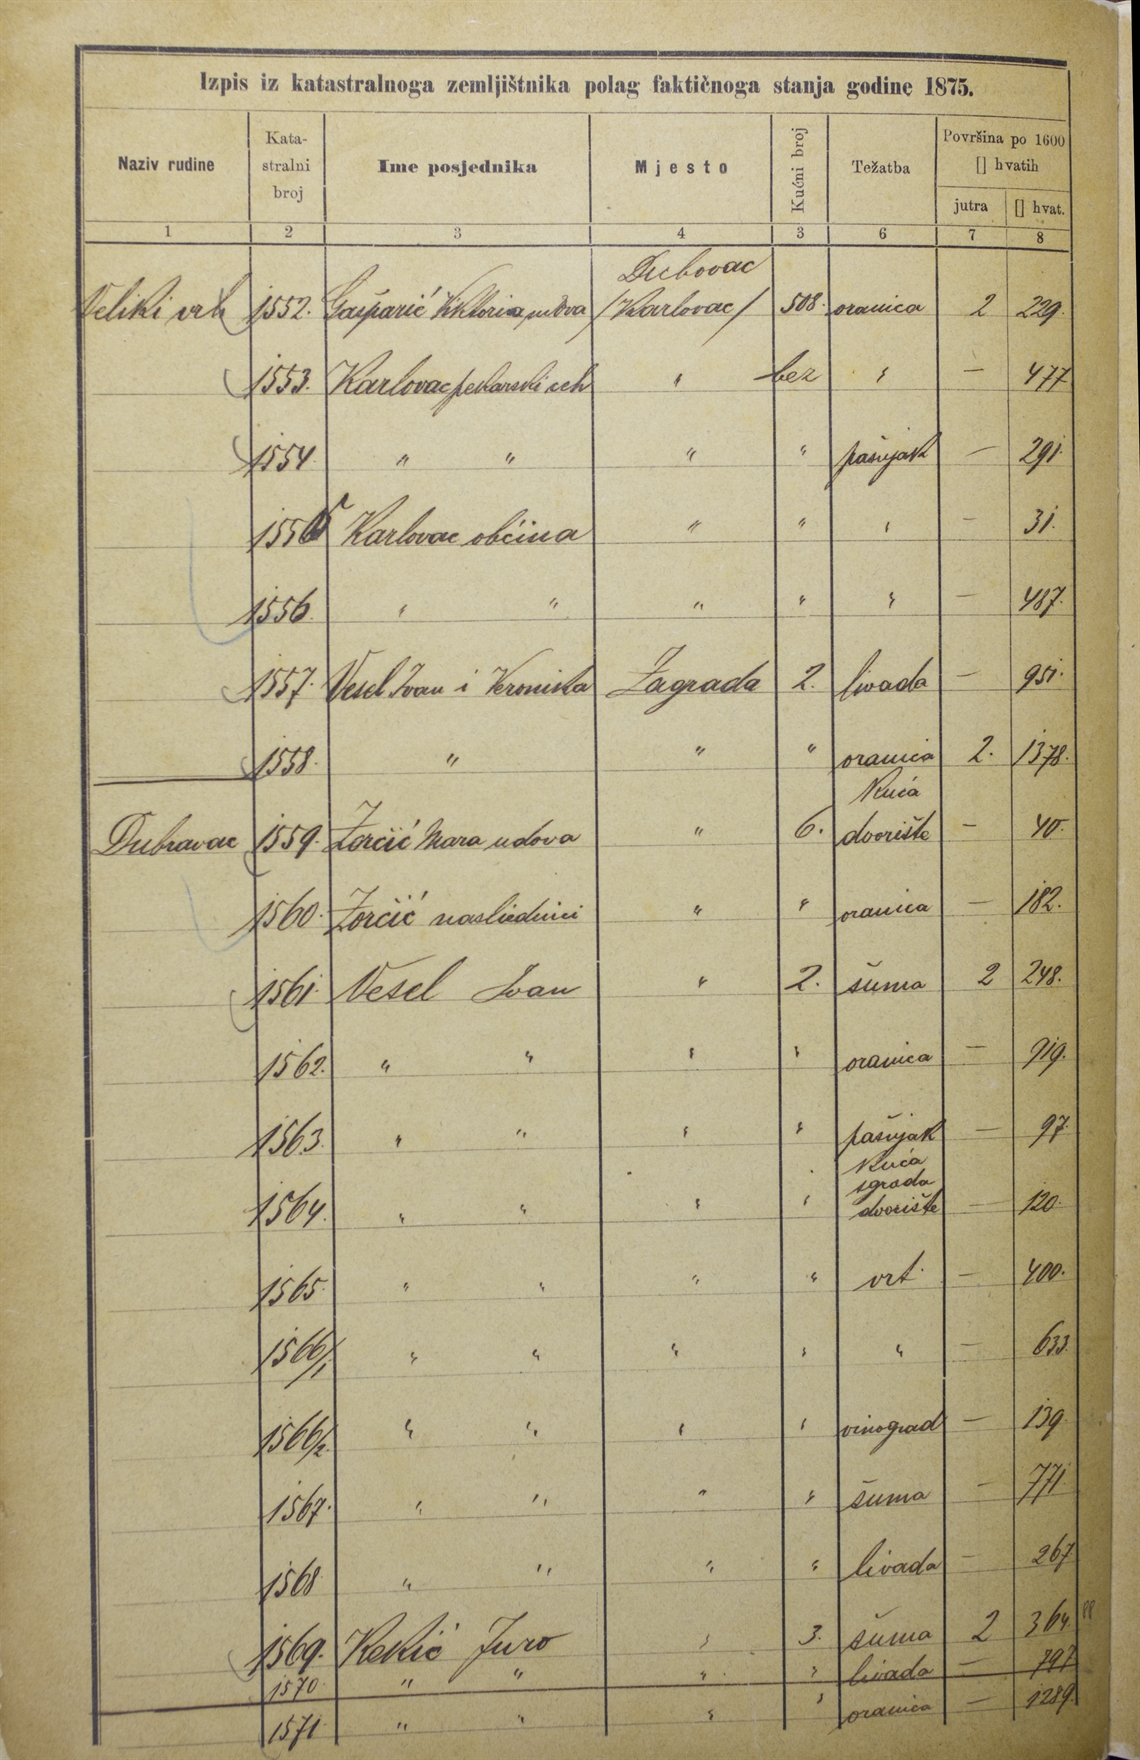 Izpis iz katastralnoga zemljištnika polag faktičnoga stanja godine 1875.
Naziv rudine Kata-stralni broj Ime posjednika Mjesto Kućni broj Težatba Površina po 1600 [] hvatih jutra [] hvat.
1 2 3 4 3 6 7 8
Dubovac
Veliki vrh 1552. Gašparić Viktoria udova /Karlovac/ 508. oranica 2 229.
1553. Karlovac pekarski ceh " bez " — 477
1554. " " " " pašnjak — 291.
1555 Karlovac občina " " " — 31.
1556. " " " " " — 487.
1557. Vesel Ivan i Veronika Zagrada 2. livada — 951.
1558. " " " oranica 2. 1378.
Kuća
Dubravac 1559. Zorčić Mara udova " 6. dvorište — 40.
1560. Zorčić nasliednici " " oranica — 182.
1561. Vesel Ivan " 2. šuma 2 248.
1562. " " " " oranica — 919.
1563. " " " " pašnjak — 97.
Kuća
sgrada
1564. " " " " dvorište — 120.
1565. " " " " vrt. — 400.
1566/1 " " " " " — 633.
1566/2. " " " " vinograd — 139.
1567. " " " " šuma — 771.
1568 " " " " livada — 267
1569. Kekić Juro " 3. šuma 2 364.
1570. " " " " livada — 797
1571. " " " " oranica — 1289.